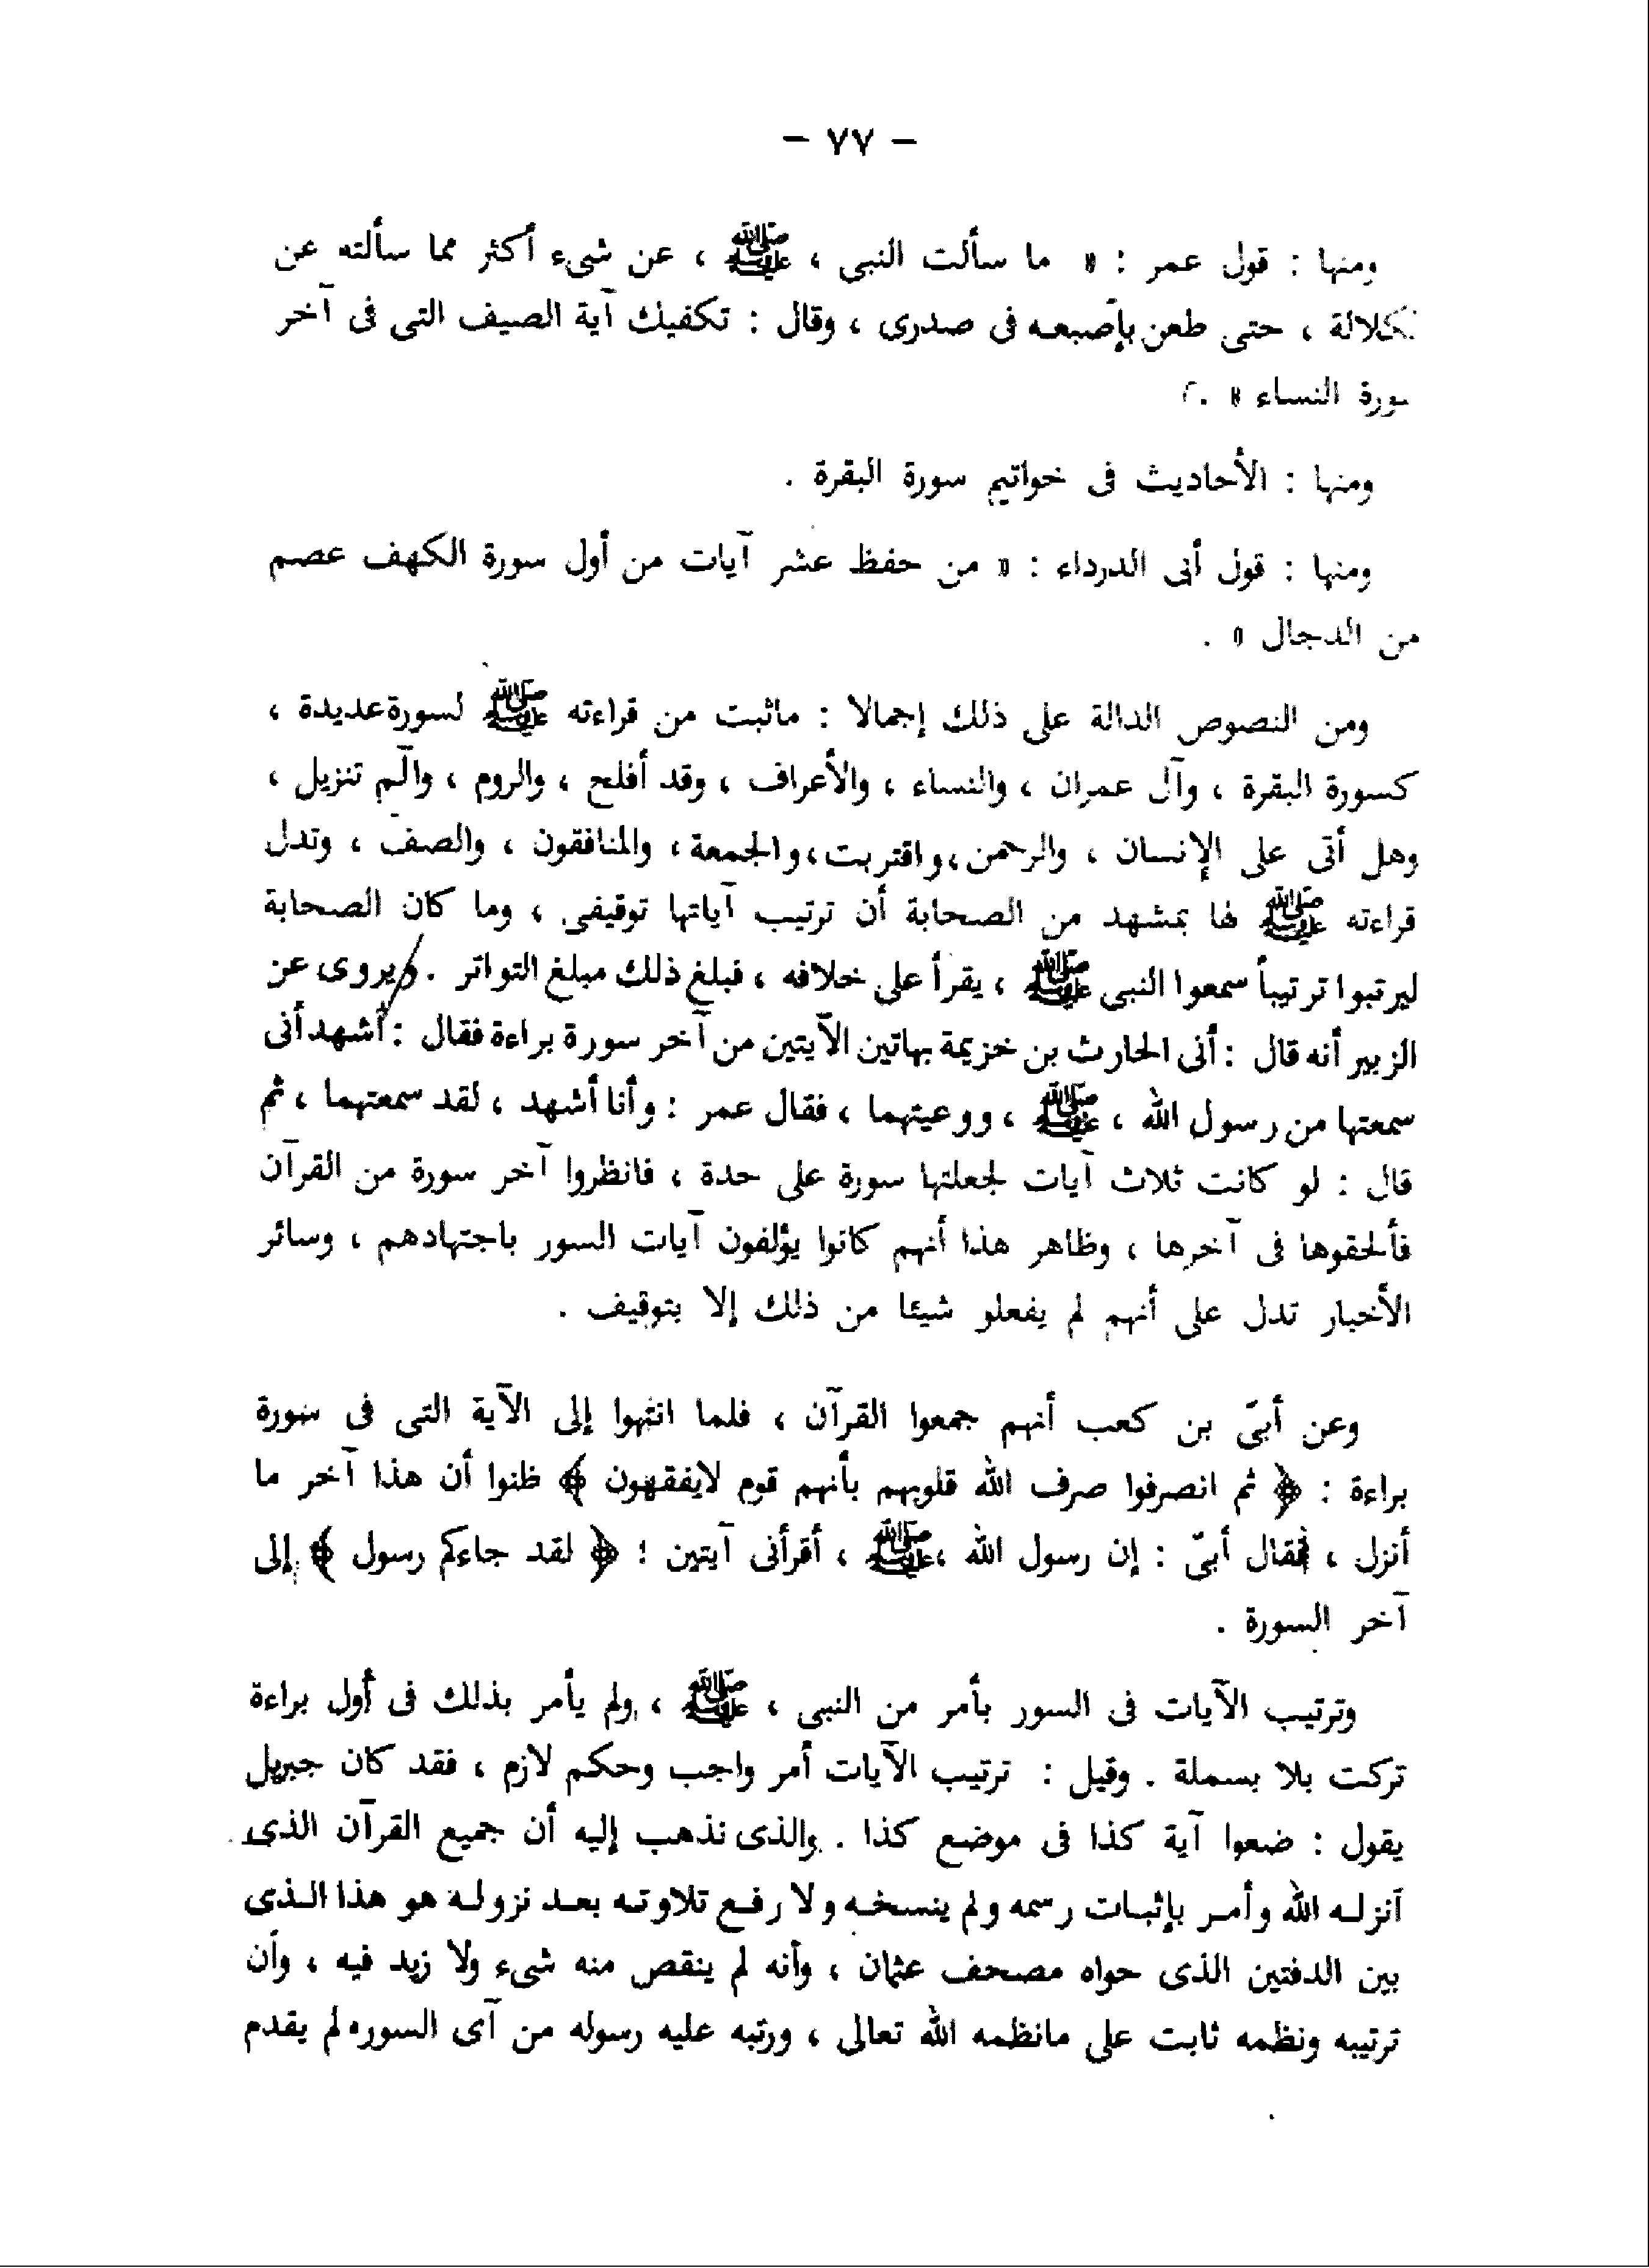 - ٧٧ -
ومنها : قول عمر : « ما سألت النبى ، ﷺ ، عن شىء أكثر مما سألته عن
كلالة ، حتى طعن بإصبعه فى صدرى ، وقال : تكفيك آية الصيف التى فى آخر
سورة النساء » .
ومنها : الأحاديث فى خواتيم سورة البقرة .
ومنها : قول أبى الدرداء : « من حفظ عشر آيات من أول سورة الكهف عصم
من الدجال » .
ومن النصوص الدالة على ذلك إجمالا : ماثبت من قراءته ﷺ لسورة عديدة ،
كسورة البقرة ، وآل عمران ، والنساء ، والأعراف ، وقد أفلح ، والروم ، والٓم تنزيل ،
وهل أتى على الإنسان ، والرحمن ، واقتربت ، والجمعة ، والمنافقون ، والصف ، وتدل
قراءته ﷺ لها بمشهد من الصحابة أن ترتيب آياتها توقيفى ، وما كان الصحابة
ليرتبوا ترتيباً سمعوا النبى ﷺ ، يقرأ على خلافه ، فبلغ ذلك مبلغ التواتر . ويروى عن
الزبير أنه قال : أنى الحارث بن خزيمة بهاتين الآيتين من آخر سورة براءة فقال : أشهد أنى
سمعتها من رسول الله ، ﷺ ، ووعيتهما ، فقال عمر : وأنا أشهد ، لقد سمعتهما ، ثم
قال : لو كانت ثلاث آيات لجعلتها سورة على حدة ، فانظروا آخر سورة من القرآن
فألحقوها فى آخرها ، وظاهر هذا أنهم كانوا يؤلفون آيات السور باجتهادهم ، وسائر
الأخبار تدل على أنهم لم يفعلو شيئا من ذلك إلا بتوقيف .
وعن أبىّ بن كعب أنهم جمعوا القرآن ، فلما انتهوا إلى الآية التى فى سورة
براءة : ﴿ ثم انصرفوا صرف الله قلوبهم بأنهم قوم لايفقهون ﴾ ظنوا أن هذا آخر ما
أنزل ، فقال أبىّ : إن رسول الله ، ﷺ ، أقرأنى آيتين : ﴿ لقد جاءكم رسول ﴾ إلى
آخر السورة .
وترتيب الآيات فى السور بأمر من النبى ، ﷺ ، ولم يأمر بذلك فى أول براءة
تركت بلا بسملة . وقيل : ترتيب الآيات أمر واجب وحكم لازم ، فقد كان جبريل
يقول : ضعوا آية كذا فى موضع كذا . والذى نذهب إليه أن جميع القرآن الذى
أنزله الله وأمر بإثبات رسمه ولم ينسخه ولا رفع تلاوته بعد نزوله هو هذا الذى
بين الدفتين الذى حواه مصحف عثمان ، وأنه لم ينقص منه شىء ولا زيد فيه ، وأن
ترتيبه ونظمه ثابت على مانظمه الله تعالى ، ورتبه عليه رسوله من آى السوره لم يقدم